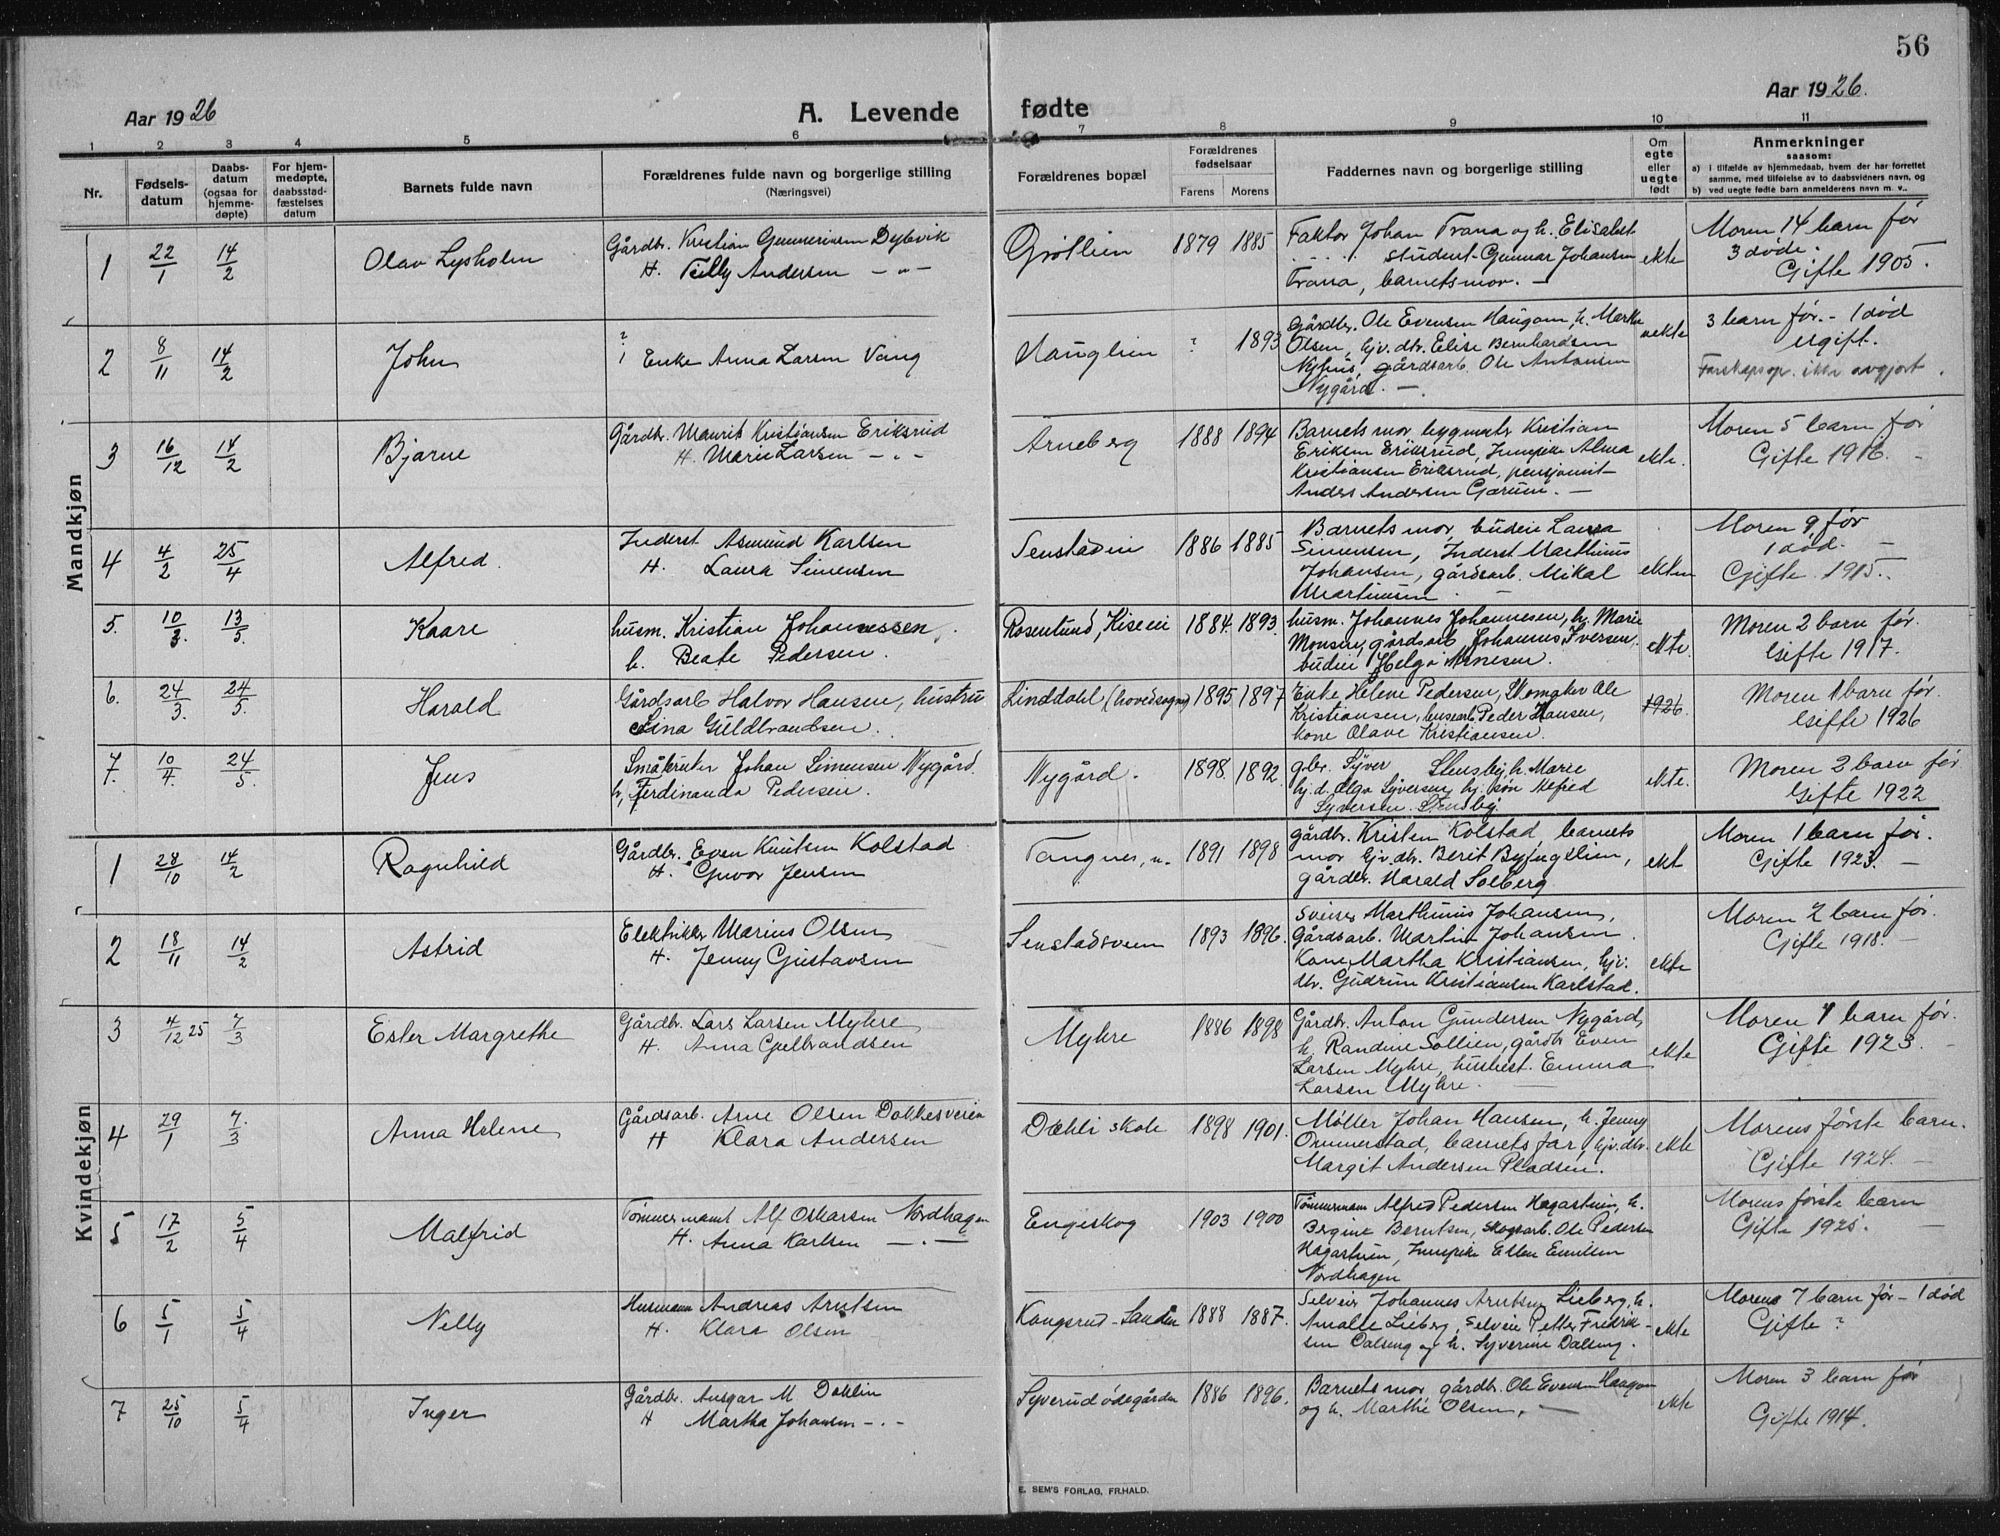 56
Aar 1926
A. Levende fødte
Aar 1926.
1 2 3 4 5 6 7 8 9 10 11
Nr.
Fødsels-
datum
Daabs-
datum
(ogsaa for
hjemme-
døpte)
For hjem-
medøpte,
daabsstad-
fæstelses
datum
Barnets fulde navn
Forældrenes fulde navn og borgerlige stilling
(Næringsvei)
Forældrenes bopæl
Forældrenes
fødselsaar
Farens Morens
Faddernes navn og borgerlige stilling
Om
egte
eller
uegte
født
Anmerkninger
saasom:
a) i tilfælde av hjemmedaab, hvem der har forrettet
samme, med tilføielse av to daabsvidners navn, og
b) ved uegte fødte barn anmelderens navn m. v..
Mandkjøn
1 22/1 14/2 Olav Lysholm
Gårdbr. Kristian Gunneriusen Dybvik
H. Tilly Andersen — " —
Grøtlien 1879 1885
Faktor Johan Trana og h. Elisabet
student Gunnar Johansen
Trana, barnets mor. —
ekte
Moren 14 barn før
3 døde.
Gifte 1905.
2 8/11 14/2 John
?
Enke Anna Larsen Vang
Hauglien ? 1893
Gårdbr. Ole Evensen Haugom, h. Marthe
Olsen, hjv. dtr. Elise Bernhardsen
Nyhus, gårdsarb. Ole Antonsen
Nygård. —
uekte
3 barn før. - 1 død
ugift.
Farskapsop. ikke avgjort.
3 16/12 14/2 Bjarne
Gårdbr. Maurits Kristiansen Eriksrud
H. Marie Larsen — " —
Arneberg 1888 1894
Barnets mor, bygmester Kristian
Eriksen Eriksrud, Jungpike Alma
Kristiansen Eriksrud, pensjonist
Anders Andersen —
ekte.
Moren 5 barn før
Gifte 1916. —
4 4/2 25/4 Alfred.
Inderst Asmund Karlsen
H. Laura Simensen
1886 1885
Barnets mor, budeie Laura
Simensen, Inderst Marthinus
Johansen, gårdsarb. Mikal
Martinsen —
ekten
Moren 9 før
1 død. —
Gifte 1915.
5. 10/3. 13/5. Kaare
husm. Kristian Johannessen,
h. Beate Pedersen.
Rosenlund, Kiseie 1884. 1893.
husm. Johannes Johannesen, h. Marie
Monsen, gårdsarb. Johannes Iversen,
budeie Helga Arnesen.
ekte.
Moren 2 barn før.
Gifte 1917.
6. 24/3. 24/5. Harald
Gårdsarb Halvor Hansen, hustru
Lina Guldbrandsen.
Linddahl (hovedsogn) 1895 1897
Enke Helene Pedersen, Skomaker Ole
Kristiansen, Peder Hansen,
kone Olave Kristiansen.
1926.
Moren 1 barn før.
Gifte 1926
7. 10/4. 24/5. Jens
Småbruker Johan Simensen Nygård
h, Ferdinanda Pedersen.
Nygård. 1898. 1892.
gbr. Syver Stensby, h. Marie
hj. d. Olga Syversen, hj. søn Alfred
Syversen Stensby.
ekte.
Moren 2 barn før
Gifte 1922
Kvindekjøn
1 28/10 14/2 Ragnhild
Gårdbr. Even Knutsen Kolstad
H. Gunvor Jensen
Tangnes, n. 1891 1898
gårdbr. Kristen Kolstad, barnets
mor, hjv. dtr. Berit Byfuglien,
gårdbr. Harald Solberg
ekt
Moren 1 barn før.
Gifte 1923. —
2 18/11 14/2 Astrid
Elektriker Marius Olsen
H. Jenny Gustavsen
Senstadsveen 1893 1896.
Sveiser Marthinus Johansen,
Gårdsarb. Martin Johansen
Kone Martha Kristiansen, hjv.
dtr. Gudrun Kristiansen Karlstad.
ekte
Moren 2 barn før.
Gifte 1918. —
3 4/12 25 7/3 Ester Margrethe
Gårdbr. Lars Larsen Myhre
H. Anna Gulbrandsen
Myhre 1886 1898
Gårdbr. Anton Gundersen Nygård,
h. Randine Sollien, gårdbr Even
Larsen Myhre, husbest. Emma
Larsen Myhre. —
ekte
Moren 1 barn før.
Gifte 1923. —
4 29/1 7/3 Anna Helene
Gårdsarb. Arne Olsen Dokkesveien
H Klara Andersen
Dæhli skole 1898 1901.
Møller Johan Hansen, h. Jenny
Ommerstad, barnets far, hjv. dtr.
Margit Andersen Pladsen.
ekte
Morens første barn.
Gifte 1924. —
5 17/2 5/4 Malfrid
Tømmermand Alf Oskarsen Nordhagen
H. Anna Karlsen — " —
Engeskog 1903 1900
Tømmermann Alfred Pedersen Hagastuen, h.
Bergine Berntsen, skogsarb. Ole Pedersen
Hagastuen, Jungpike Ellen Emilsen
Nordhagen
Morens første barn
Gifte 1925. —
6 5/1 5/4 Nelly
Husmann Andreas Arntsen
H. Klara Olsen
Kongsrud - Sanden 1888 1887.
Selveier Johannes Arntsen Lieberg, h.
Amalie Lieberg, Selveie Petter Fredrik-
sen Dalseng og h. Syverine Dalseng.
ekte
Morens 7 barn før - 1 død
Gifte ?
7 25/10 5/4 Inger
Gårdbr. Ansgar M Dæhlin
H Martha Johansen — " —
Syverud ødegården 1886 1896.
Barnets mor, gårdbr. Ole Evensen Haagom
og h. Marthe Olsen, —
ekte
Moren 3 barn før
Gifte 1914.
E. SEM'S FORLAG, FR.HALD.